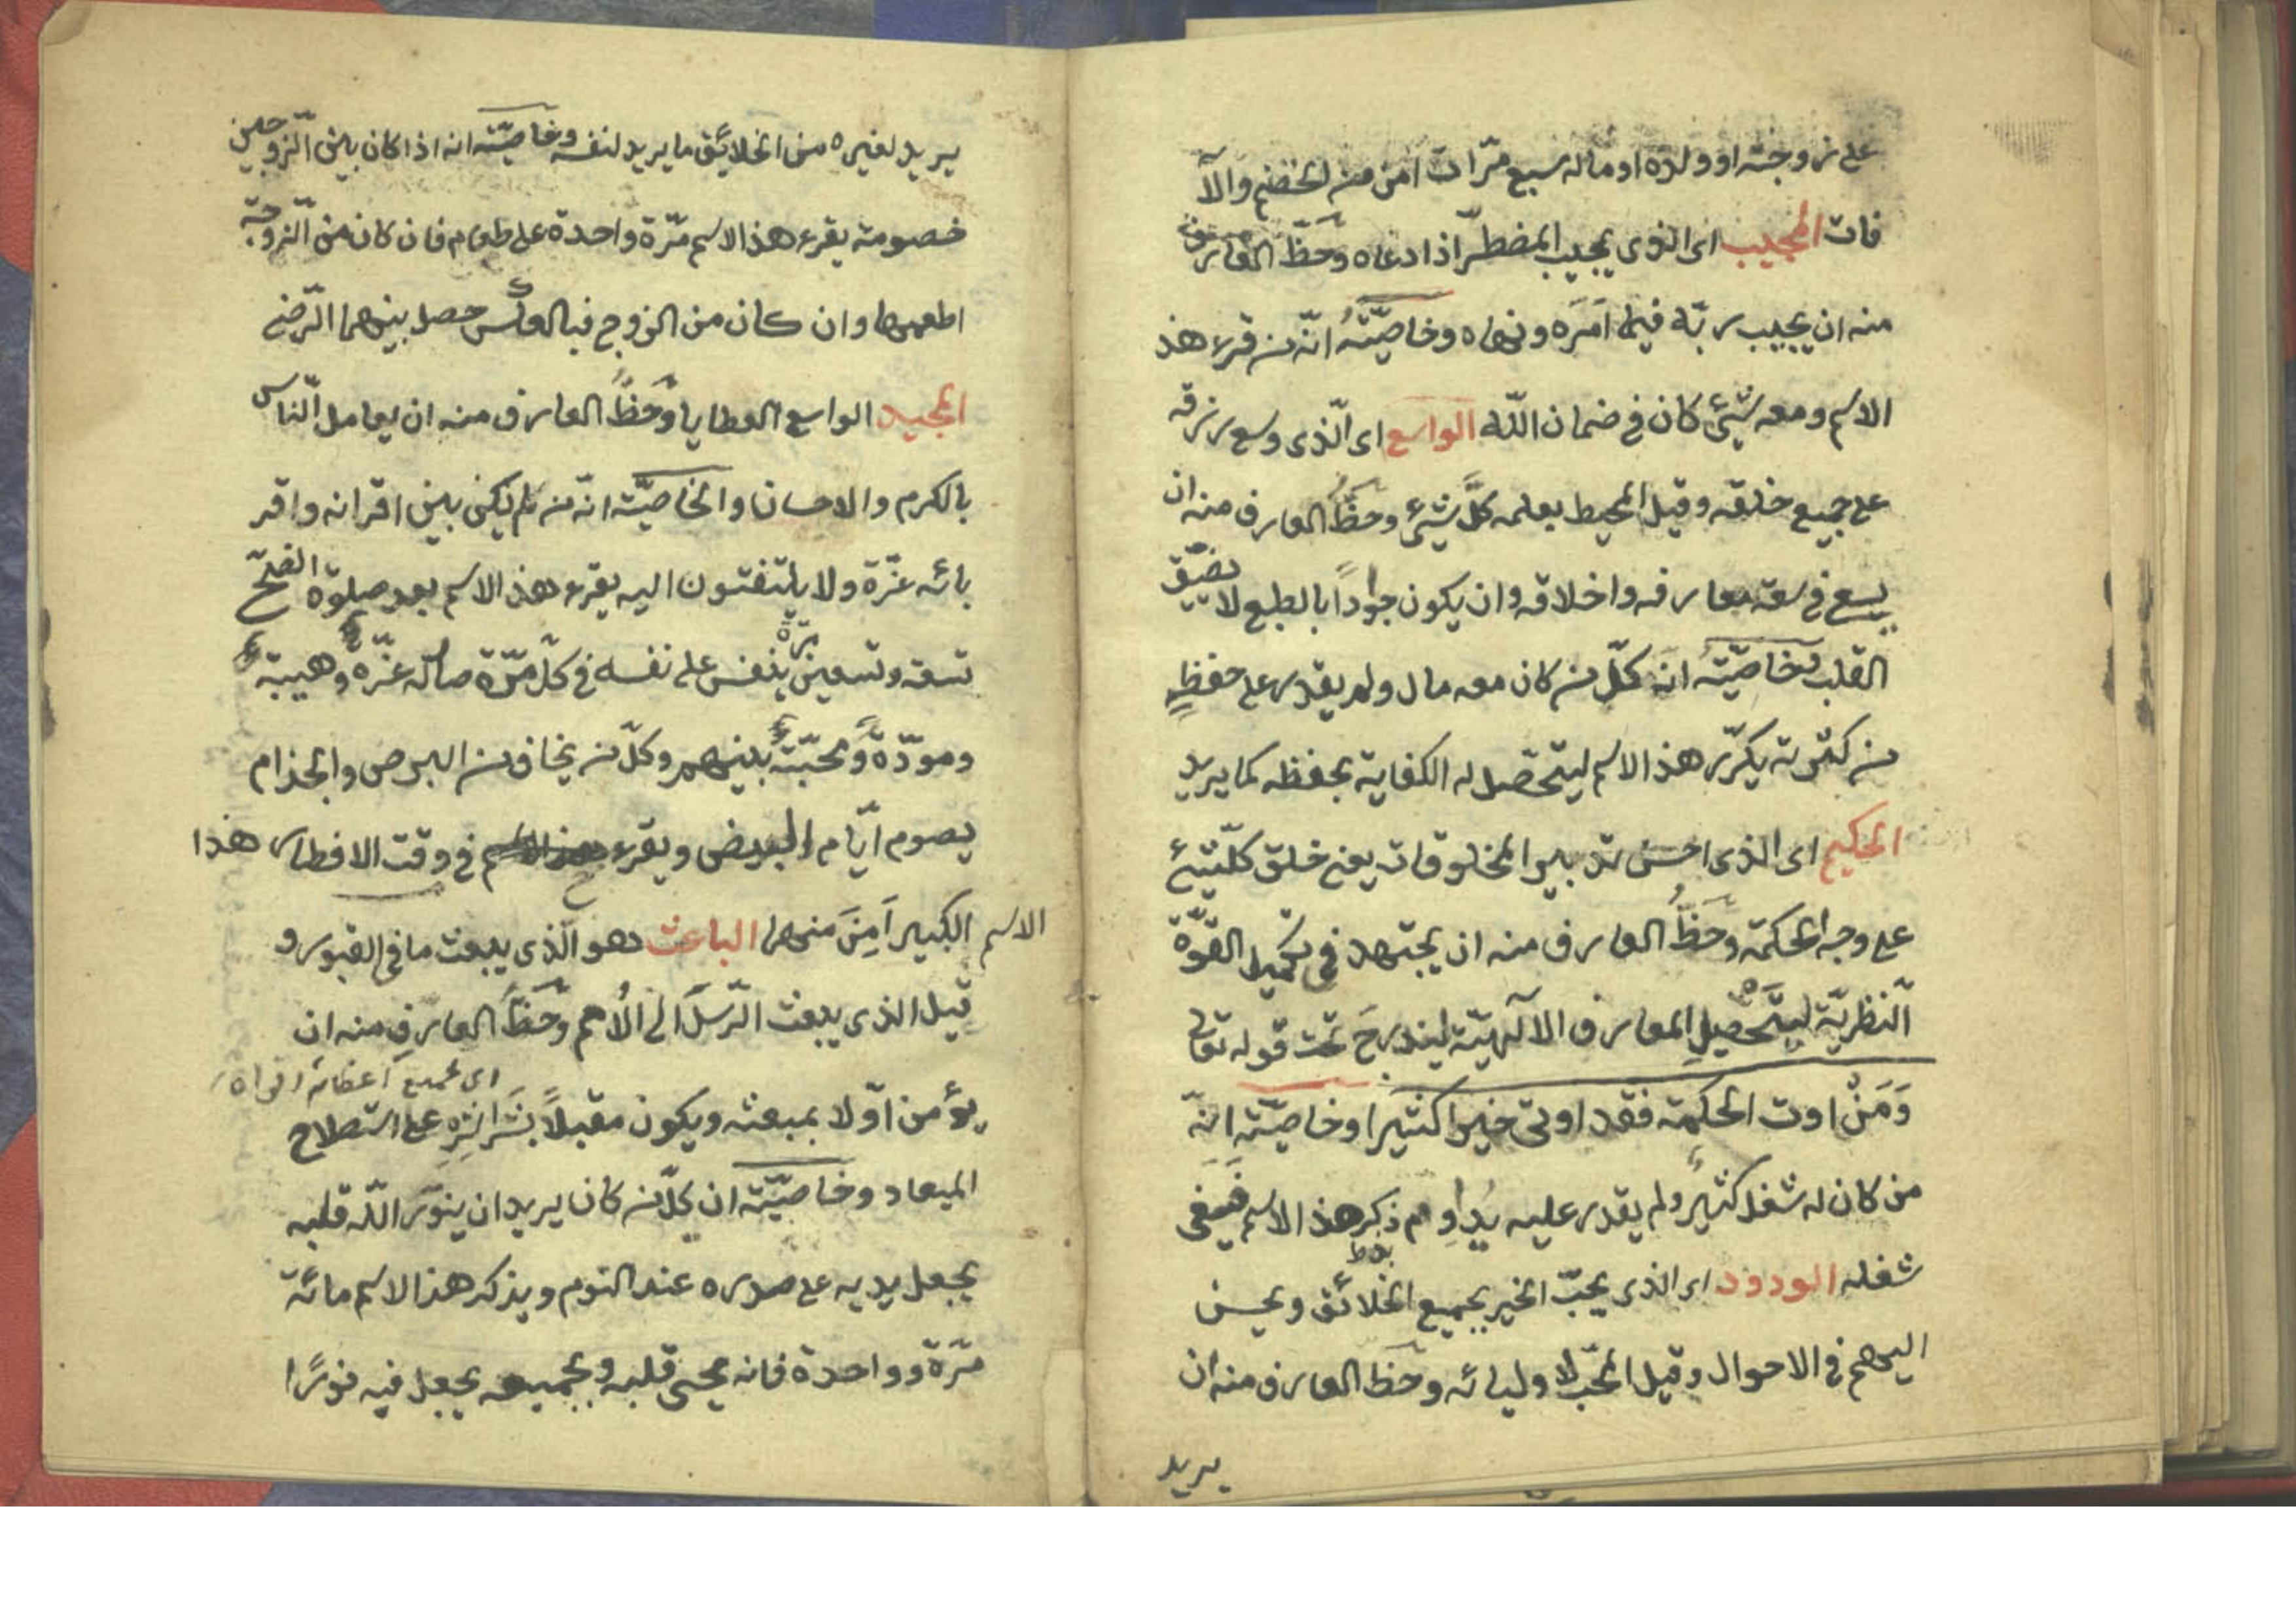 على زوجته او ولده او ماله سبع مرّات امن من الخصم والآ
فات المجيب اى الذى يجيب المضطرّ اذا دعاه وحظّ العارف
منه ان يجيب ربّه فيما امَرَه ونهاه وخاصيّتهُ انّه من قرء هذ
الاسم ومعه شيئ كان فى ضمان اللّه الواسع اى الّذى وسع رزقه
على جميع خلقه وقيل المحيط بعلمه كلَّ شيئ وحظُّ العارف منه ان
يسع فى سعة معارفه واخلاقه وان يكون جواداً بالطبع لا يضيّق
القلب وخاصيّتهُ انّه كلّ من كان معه مال ولم يقدر على حفظهِ
من كثرته يكرّر هذ الاسم ليتحصل له الكفاية بحفظه كما يريد
الحكيم اى الذى احسن تدبير المخلوقات يعنى خلق كلّ شيئ
على وجه الحكمة وحَظُّ العارف منه ان يجتهد فى تكميل القوّة
النّظريّة ليتحصيلِ المعارف الآلهيّة ليندرجَ تحت قوله تعالى
وَمَنْ اوت الحكمة فقد اوتى خيرا كثيرا وخاصيّته انّه
من كان له شغل كثيرٌ ولم يقدر عليه يُداوِم ذكر هذ الاسم فيبقى
شغله الودود اى الذى يحبّ الخير بجميع الخلائق ويحسن
اليهم فى الاحوال وقيل المحبّ لاوليائه وحَظّ العارف منه ان
يريد
يريد لغيره من الخلائق ما يريد لنفسه وخاصيّته انه اذا كان بين الزّوجين
خصومة يقرء هذ الاسم مرّة واحدة على طعام فان كان من الزّوجة
اطعمها وان كان من الزوج فبالعكس حصل بينهما الرّضى
المجيد الواسع العطايا وحَظُّ العارف منه ان يعامل النّاس
بالكرم والاحسان والخاصيّة انّه من لم يكن بين اقرانه واقر
بائه عزّة ولا يلتفتون اليه يقرء هذ الاسم بعد صلوة الصّبح
تسعة وتسعين مرّة ينفس على نفسه فى كلّ مرّة صار له عزّة وهيبة
ومودّةً ومحبّةً بينهم وكلّ من يخاف من البرص والجذام
يصوم ايّام البيض ويقرء فى وقت الافطار هذا
الاسم الكبير اَمِنَ منها الباعث هو الّذى يبعث ما فى القبور و
قيل الذى يبعث الرّسلَ الى الاُمم وحَظّ العارفِ منه ان
اى بجميع اعضائه
يؤمن اوّلا بمبعثه ويكون مقبلاً بشَراشِرِه على استصلاح
الميعاد وخاصيّته ان كلّ من كان يريد ان ينوّر اللّه قلبه
يجعل يديه على صدره عند النوم ويذكر هذ الاسم مائة
مرّة وواحدة فانه يحيى قلبه وبجميعه يجعل فيه نورًا